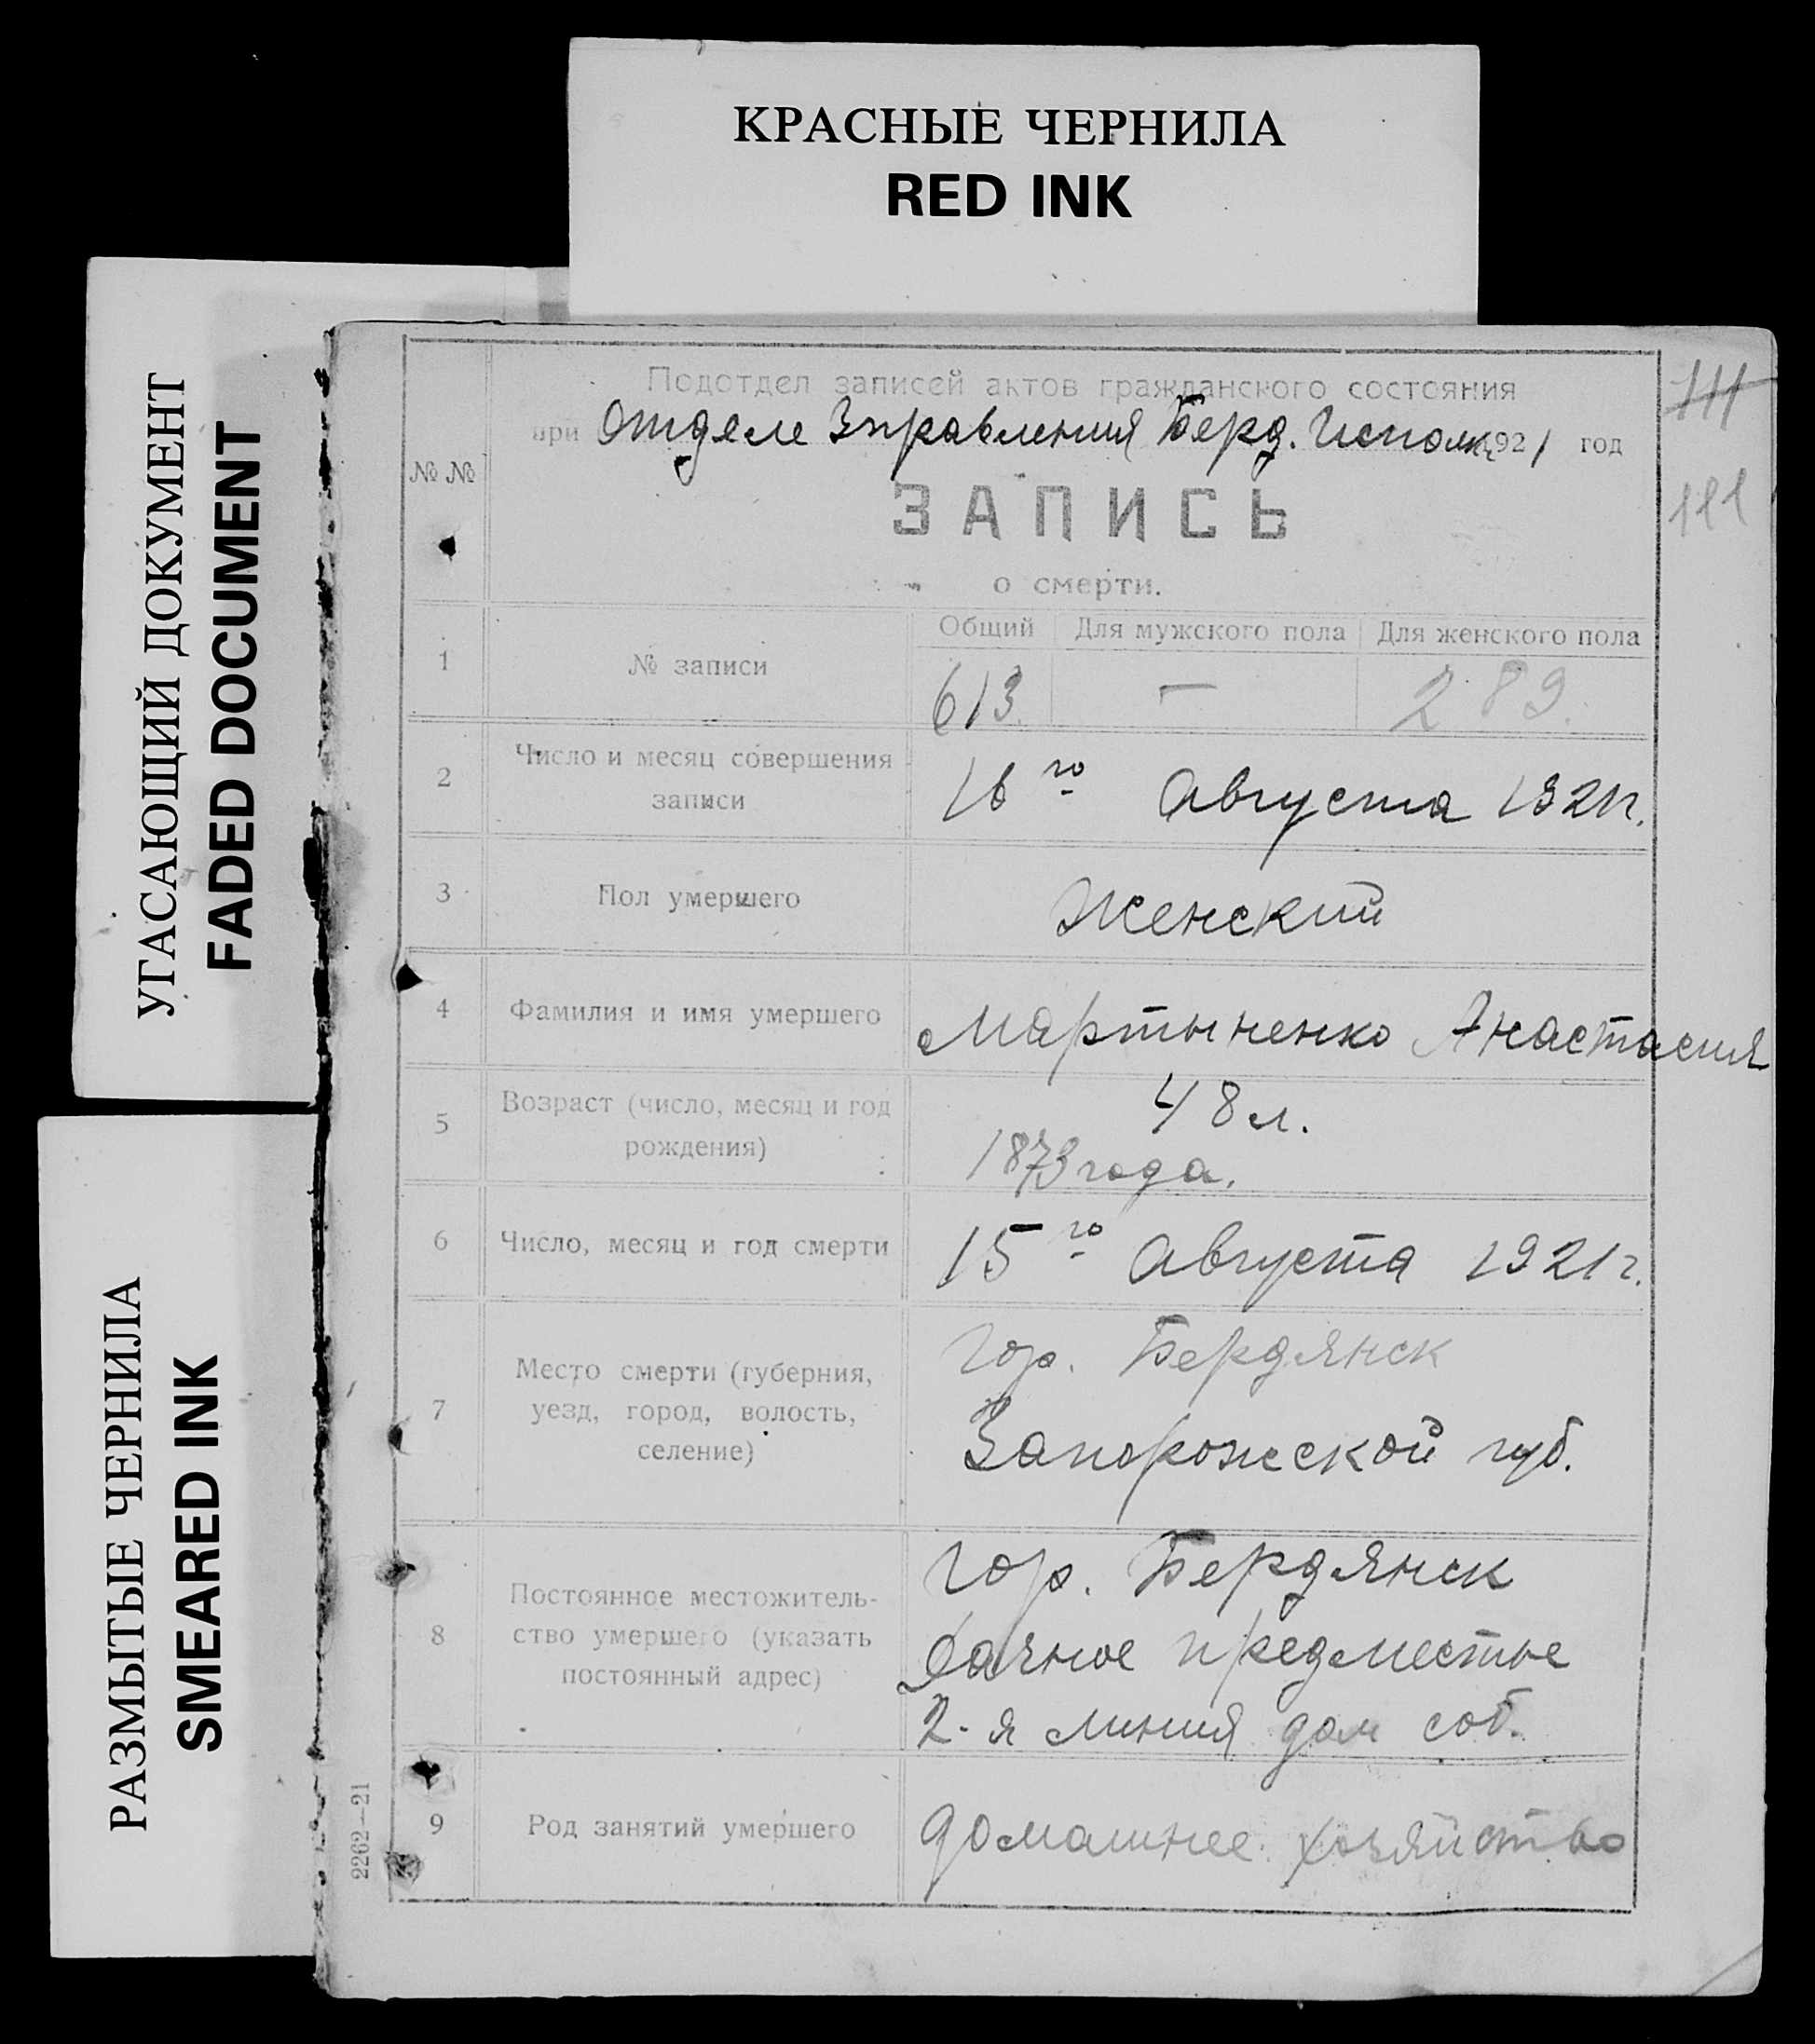 КРАСНЫЕ ЧЕРНИЛА
RED INK
УГАСАЮЩИЙ ДОКУМЕНТ
FADED DOCUMENT
РАЗМЫТЫЕ ЧЕРНИЛА
SMEARED INK
111
111
№ №
Подотдел записей актов гражданского состояния
при Отделе Управления Берд. Исполк. 1921 год
ЗАПИСЬ
о смерти.
Общий Для мужского пола Для женского пола
1 № записи 613. — 289.
2 Число и месяц совершения
записи
16го Августа 1921г.
3 Пол умершего Женский
4 Фамилия и имя умершего Мартыненко Анастасия
5 Возраст (число, месяц и год
рождения)
48 л.
1873 года.
6 Число, месяц и год смерти 15го Августа 1921г.
7 Место смерти (губерния,
уезд, город, волость,
селение)
Гор. Бердянск
Запорожской губ.
8 Постоянное местожитель-
ство умершего (указать
постоянный адрес)
Гор. Бердянск
Дачное предместье
2-я линия дом соб.
9 Род занятий умершего домашнее хозяйство
2262—21